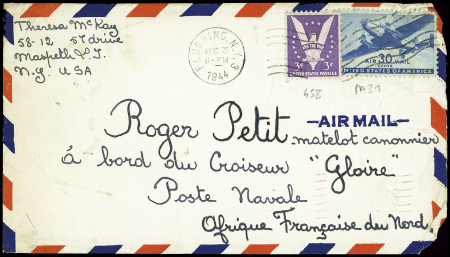 Theresa McKay
58-12 57 drive
Maspeth L.I.
N.Y. USA
FLUSHING, N.Y.
AUG
11-PM
1944
WIN THE WAR
3¢
UNITED STATES POSTAGE
30
AIR MAIL
UNITED STATES OF AMERICA
458
PA31
AIR MAIL
Roger Petit
matelot canonnier
à bord du Croiseur "Gloire"
Poste Navale
Afrique Française du Nord